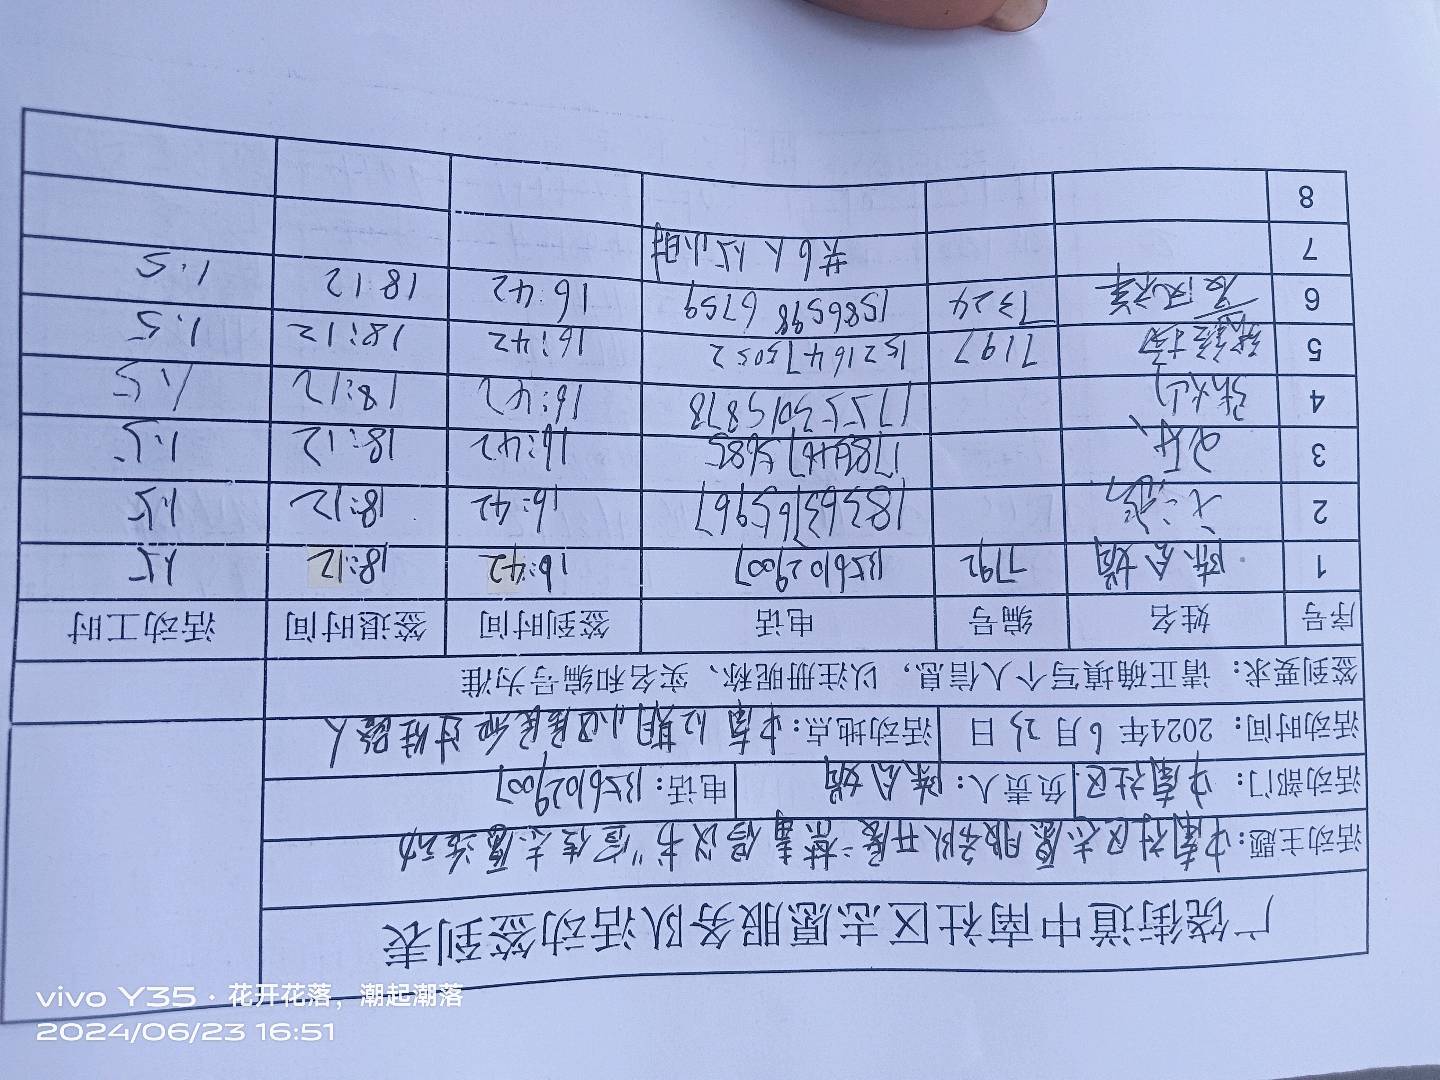 广饶街道中南社区志愿服务队活动签到表
活动主题：中南社区志愿服务队开展“禁毒倡议书”宣传志愿活动
活动部门：中南社区 负责人：陈会娟 电话：13561029007
活动时间：2024年6月23日 活动地点：中南紅期小区居民和过往路人
签到要求：请正确填写个人信息，以注册昵称、实名和编号为准
序号 姓名 编号 电话 签到时间 签退时间 活动工时
1 陈会娟 7792 13561029007 16:42 18:12 1.5
2 18563765967 16:42 18:12 1.5
3 16:42 18:12 1.5
4 17553015878 16:42 18:12 1.5
5 7197 15216475052 16:42 18:12 1.5
6 7324 15865986759 16:42 18:12 1.5
7 共6人 小时
8
vivo Y35 · 花开花落，潮起潮落
2024/06/23 16:51